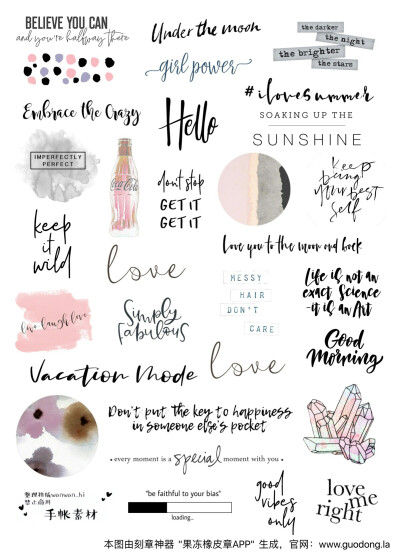 BELIEVE YOU CAN
and you're halfway there
Under the moon
the darker
the night
the brighter
the stars
girl power
#ilovesummer
Embrace the Crazy
Hello
SOAKING UP THE
SUNSHINE
IMPERFECTLY
PERFECT
Coca-Cola
don't stop
GET IT
GET IT
keep
being
your best
self
keep
it
wild
love
love you to the moon and back
MESSY
HAIR
DON'T
CARE
Life is not an
exact Science
it is an Art
live laugh love
Simply
Fabulous
love
Good
Morning
Vacation Mode
Don't put the key to happiness
in someone else's pocket
every moment is a special moment with you
整理排版wonwon_hi
禁止商用
手帐素材
"be faithful to your bias"
loading...
good
vibes
only
love
me
right
本图由刻章神器“果冻橡皮章APP”生成，官网：www.guodong.la